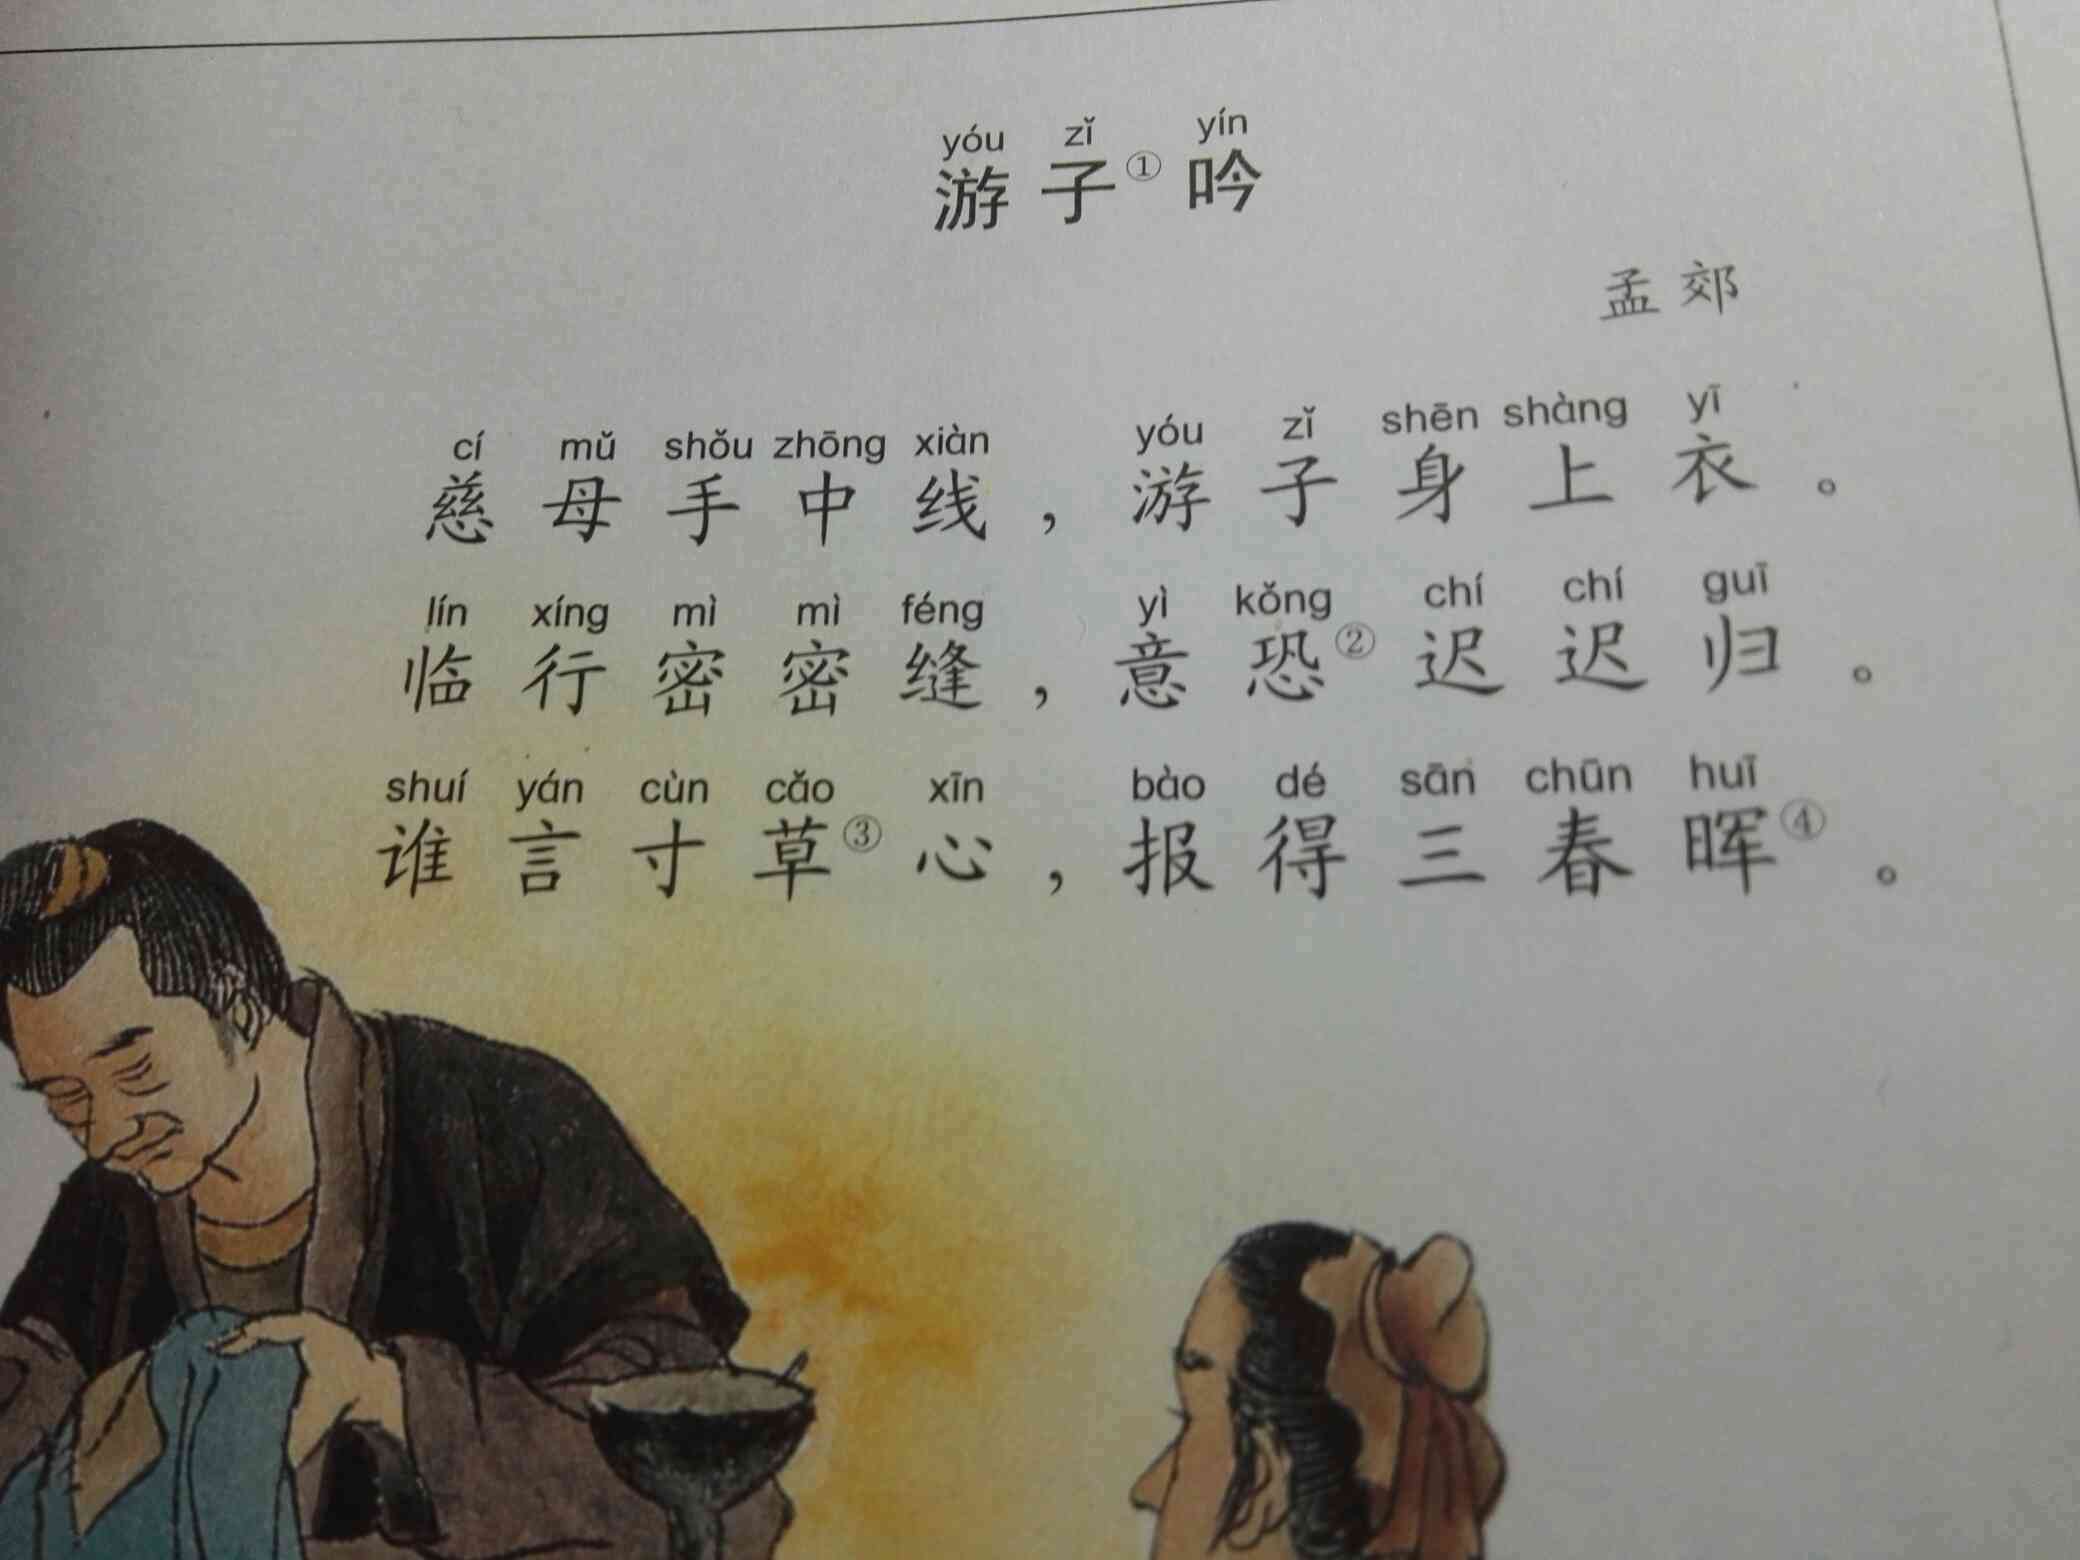 yóu zǐ yín
游子①吟
孟郊
cí mǔ shǒu zhōng xiàn yóu zǐ shēn shàng yī
慈母手中线，游子身上衣。
lín xíng mì mì féng yì kǒng chí chí guī
临行密密缝，意恐②迟迟归。
shuí yán cùn cǎo xīn bào dé sān chūn huī
谁言寸草③心，报得三春晖④。